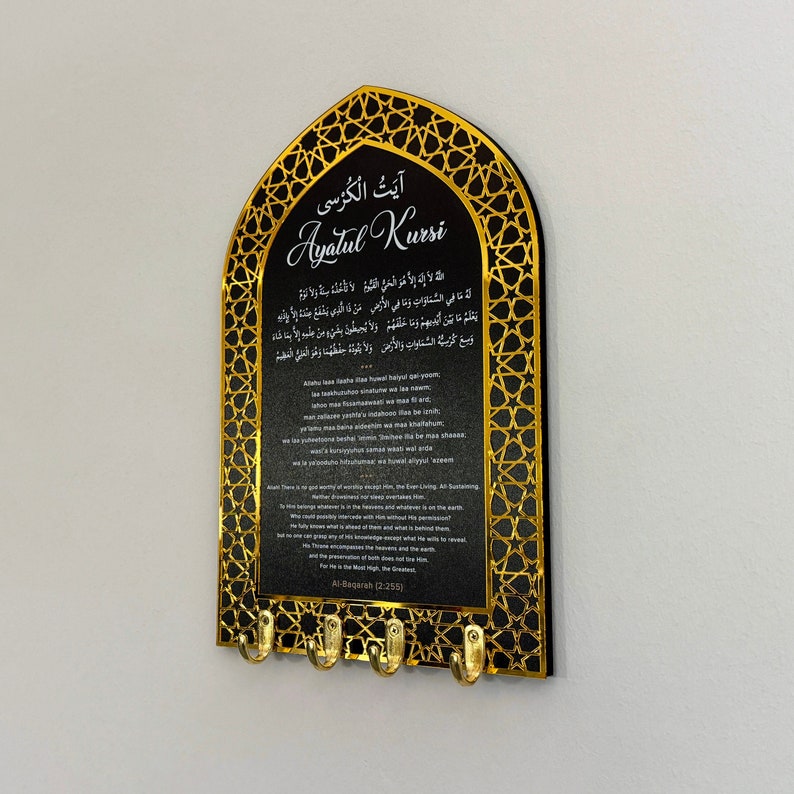 آيَتُ الْكُرْسِى
Ayatul Kursi
اللَّهُ لاَ إِلَهَ إِلاَّ هُوَ الْحَيُّ الْقَيُّومُ لاَ تَأْخُذُهُ سِنَةٌ وَلاَ نَوْمٌ
لَهُ مَا فِي السَّمَاوَاتِ وَمَا فِي الأَرْضِ مَنْ ذَا الَّذِي يَشْفَعُ عِنْدَهُ إِلاَّ بِإِذْنِهِ
يَعْلَمُ مَا بَيْنَ أَيْدِيهِمْ وَمَا خَلْفَهُمْ وَلاَ يُحِيطُونَ بِشَيْءٍ مِنْ عِلْمِهِ إِلاَّ بِمَا شَاءَ
وَسِعَ كُرْسِيُّهُ السَّمَاوَاتِ وَالأَرْضَ وَلاَ يَئُودُهُ حِفْظُهُمَا وَهُوَ الْعَلِيُّ الْعَظِيمُ
Allahu laaa ilaaha illaa huwal haiyul qai-yoom;
laa taakhuzuhoo sinatunw wa laa nawm;
lahoo maa fissamaawaati wa maa fil ard;
man zallazee yashfa'u indahooo illaa be iznih;
ya'lamu maa baina aideehim wa maa khalfahum;
wa laa yuheetoona beshai 'immin 'ilmihee illa be maa shaaaa;
wasi'a kursiyyuhus samaa waati wal arda
wa la ya'ooduho hifzuhumaa; wa huwal aliyyul 'azeem
Allah! There is no god worthy of worship except Him, the Ever-Living, All-Sustaining.
Neither drowsiness nor sleep overtakes Him.
To Him belongs whatever is in the heavens and whatever is on the earth.
Who could possibly intercede with Him without His permission?
He fully knows what is ahead of them and what is behind them,
but no one can grasp any of His knowledge-except what He wills to reveal.
His Throne encompasses the heavens and the earth,
and the preservation of both does not tire Him.
For He is the Most High, the Greatest.
Al-Baqarah (2:255)